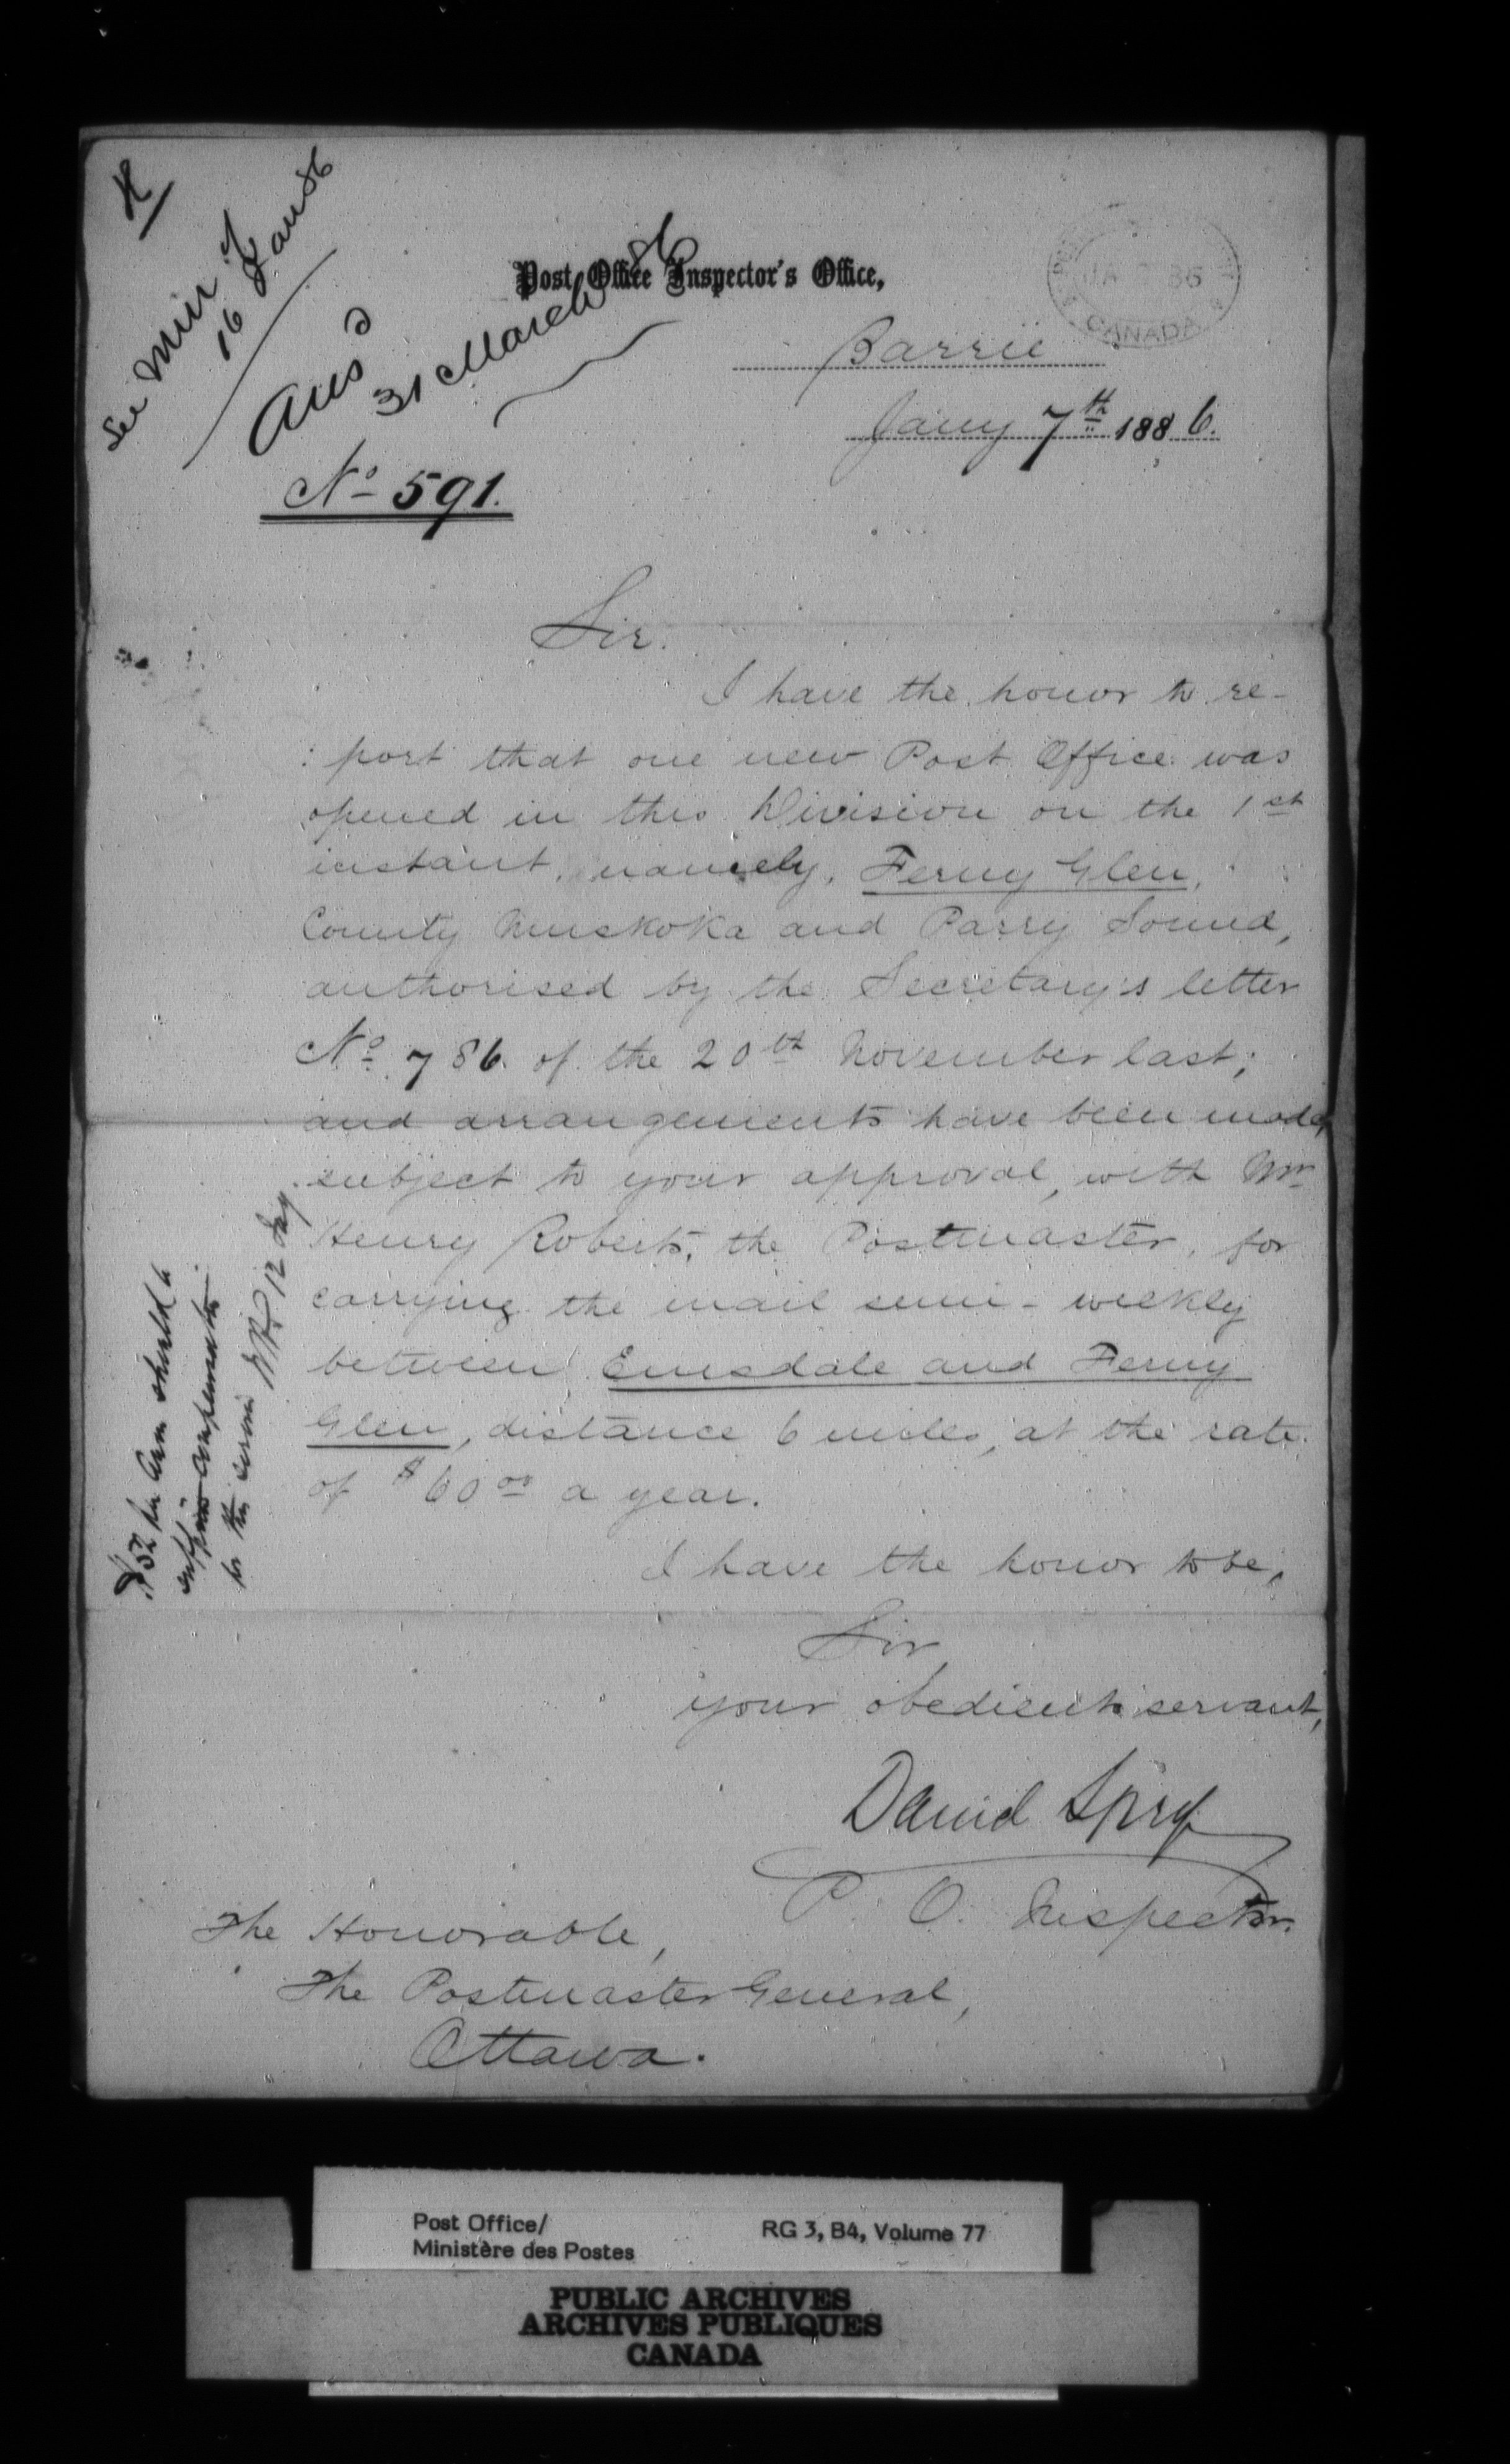 H
See Min of
16 Jan 86
Ansd
31 March 86
Post Office Inspector's Office,
CANADA
Barrie
Jany 7th 1886.
No 591.
Sir.
I have the honor to re-
: port that one new Post Office was
opened in this Division on the 1st
instant, namely, Ferny Glen,
County Muskoka and Parry Sound,
authorised by the Secretary's letter
No 786 of the 20th November last;
and arrangements have been made,
subject to your approval, with Mr
Henry Roberts, the Postmaster, for
carrying the mail semi-weekly
between Emsdale and Ferny
Glen, distance 6 miles, at the rate
of $60 00 a year.
$52 per ann should be
compensation
for this service 12 Jay
I have the honor to be,
Sir,
your obedient servant,
David Spry
P. O. Inspector.
The Honorable,
The Postmaster General,
Ottawa.
Post Office/
Ministère des Postes
RG 3, B4, Volume 77
PUBLIC ARCHIVES
ARCHIVES PUBLIQUES
CANADA